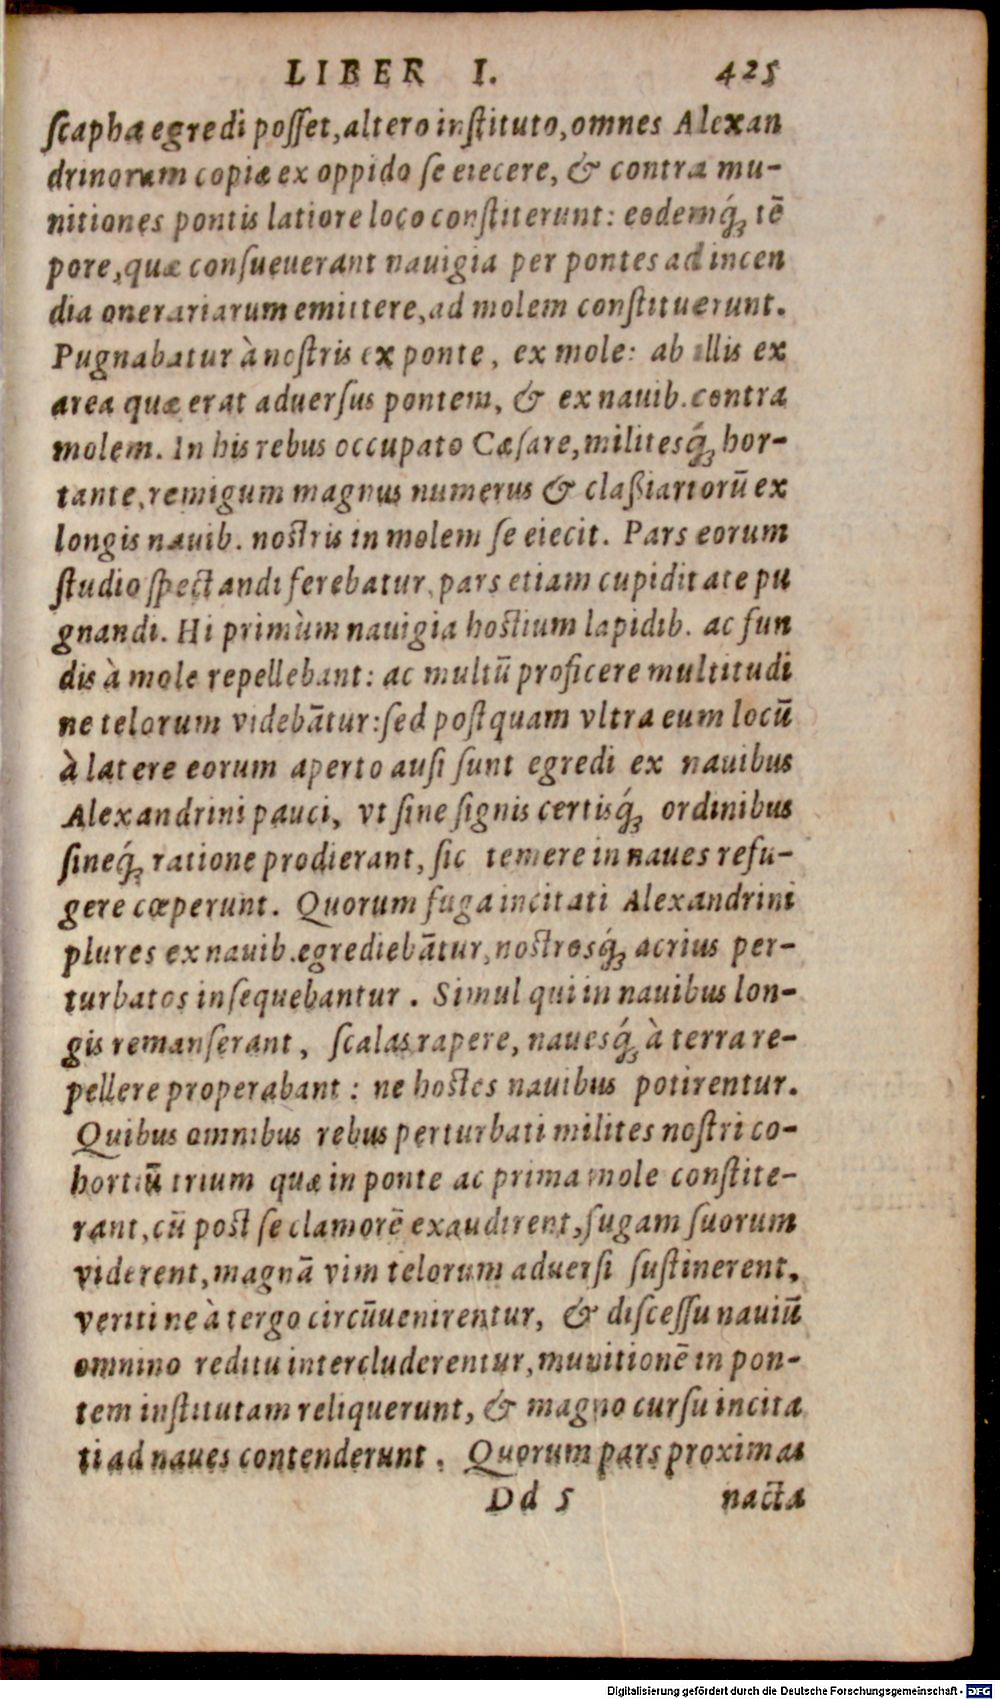 LIBER I. 425
ſcapha egredi poſſet, altero inſtituto, omnes Alexan
drinorum copiæ ex oppido ſe eiecere, & contra mu-
nitiones pontis latiore loco conſtiterunt: eodemq́ꝫ tē
pore, quæ conſueuerant nauigia per pontes ad incen
dia onerariarum emittere, ad molem conſtituerunt.
Pugnabatur à noſtris ex ponte, ex mole: ab illis ex
area quæ erat aduerſus pontem, & ex nauib. contra
molem. In his rebus occupato Cæſare, militesq́ꝫ hor-
tante, remigum magnus numerus & claßiariorū ex
longis nauib. noſtris in molem ſe eiecit. Pars eorum
ſtudio ſpectandi ferebatur, pars etiam cupiditate pu
gnandi. Hi primùm nauigia hoſtium lapidib. ac fun
dis à mole repellebant: ac multū proficere multitudi
ne telorum videbātur: ſed poſtquam vltra eum locū
à latere eorum aperto auſi ſunt egredi ex nauibus
Alexandrini pauci, vt ſine ſignis certisq́ꝫ ordinibus
ſineq́ꝫ ratione prodierant, ſic temere in naues refu-
gere cœperunt. Quorum fuga incitati Alexandrini
plures ex nauib. egrediebātur, noſtrosq́ꝫ acrius per-
turbatos inſequebantur. Simul qui in nauibus lon-
gis remanſerant, ſcalas rapere, nauesq́ꝫ à terra re-
pellere properabant: ne hoſtes nauibus potirentur.
Quibus omnibus rebus perturbati milites noſtri co-
hortiū trium quæ in ponte ac prima mole conſtite-
rant, cū poſt ſe clamorē exaudirent, fugam ſuorum
viderent, magnā vim telorum aduerſi ſuſtinerent,
veriti ne à tergo circūuenirentur, & diſceſſu nauiū
omnino reditu intercluderentur, munitionē in pon-
tem inſtitutam reliquerunt, & magno curſu incita
ti ad naues contenderunt. Quorum pars proximas
Dd 5 nacta
Digitalisierung gefördert durch die Deutsche Forschungsgemeinschaft - DFG